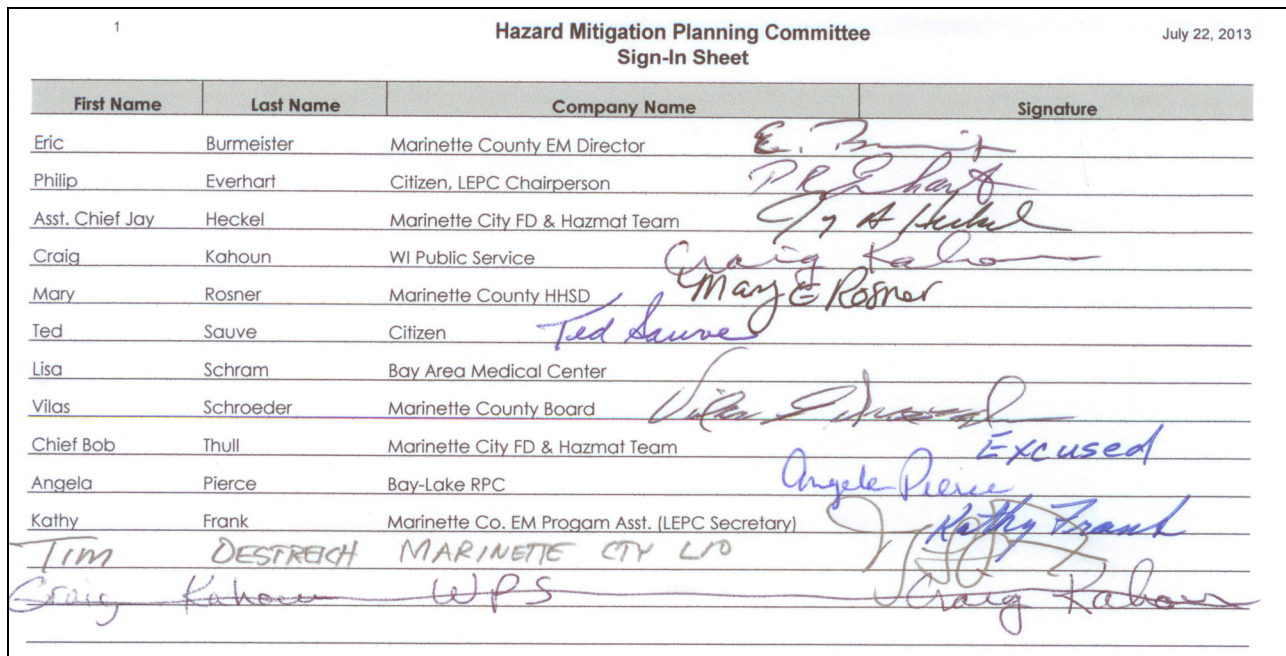 1 Hazard Mitigation Planning Committee July 22, 2013
Sign-In Sheet
First Name Last Name Company Name Signature
Eric Burmeister Marinette County EM Director E.
Philip Everhart Citizen, LEPC Chairperson
Asst. Chief Jay Heckel Marinette City FD & Hazmat Team Jay A Heckel
Craig Kahoun WI Public Service Craig Kahoun
Mary Rosner Marinette County HHSD Mary E Rosner
Ted Sauve Citizen Ted Sauve
Lisa Schram Bay Area Medical Center
Vilas Schroeder Marinette County Board Vilas
Chief Bob Thull Marinette City FD & Hazmat Team Excused
Angela Pierce Bay-Lake RPC Angela Pierce
Kathy Frank Marinette Co. EM Progam Asst. (LEPC Secretary) Kathy Frank
TIM OESTREICH MARINETTE CTY LIO
Craig Kahoun WPS Craig Kahoun